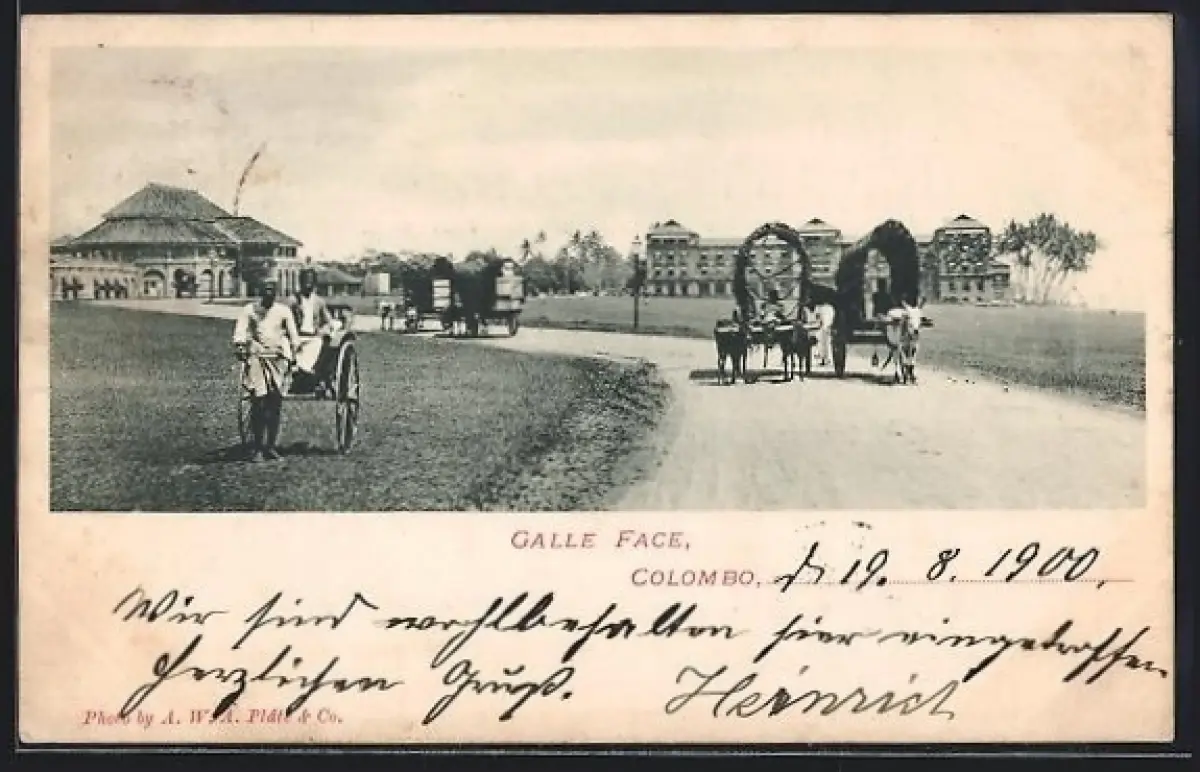 GALLE FACE,
COLOMBO, d 19. 8. 1900.
Wir sind wohlbehalten hier eingetroffen
Herzlichen Gruß. Heinrich
Photo by A. W. A. Plâté & Co.